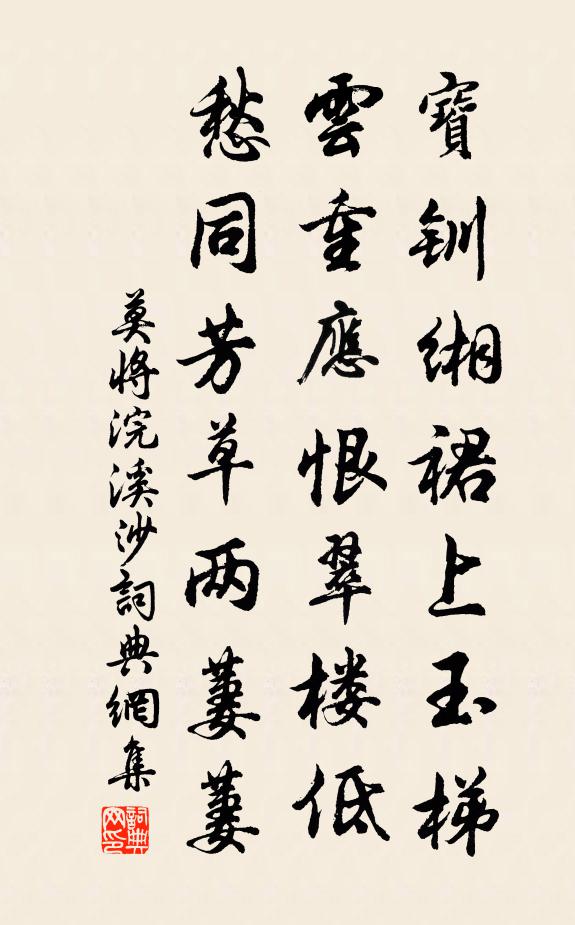 寶釧緗裙上玉梯
雲重應恨翠楼低
愁同芳草两萋萋
莫將浣溪沙詞典網集
詞典网印